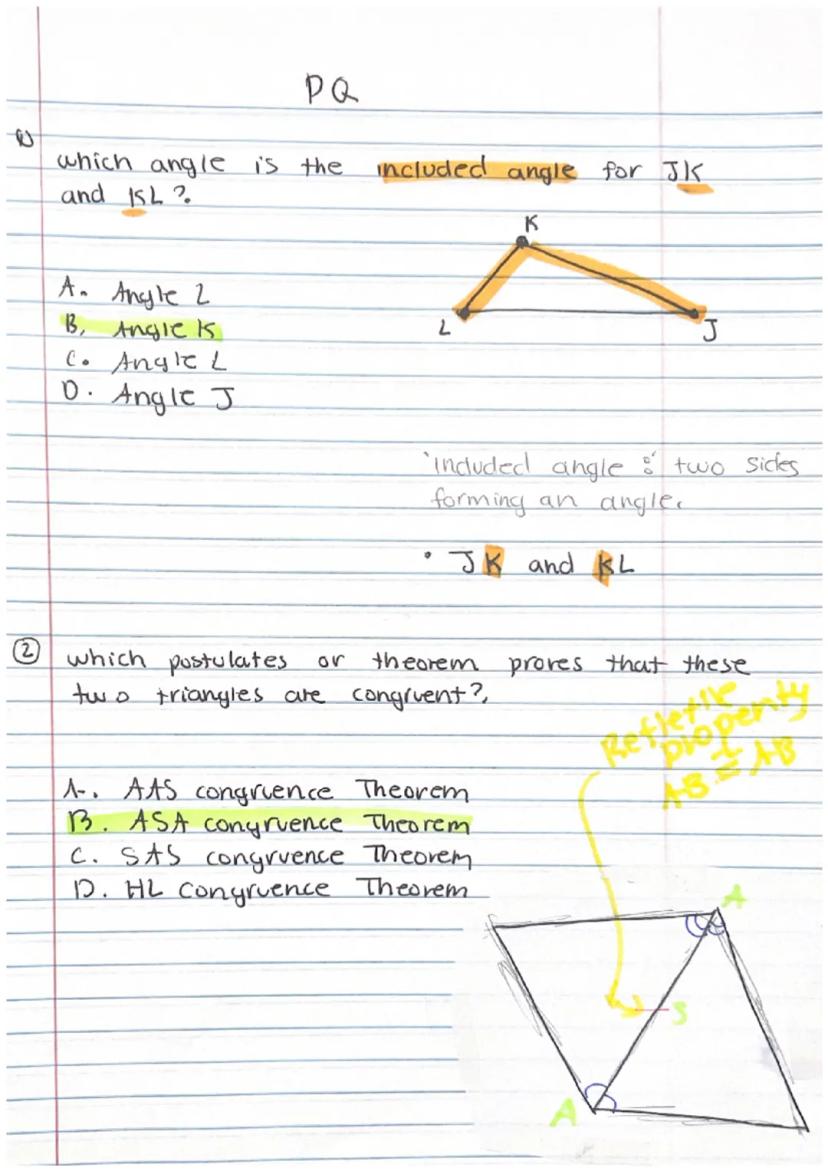 PQ
1)
which angle is the included angle for JK
and KL?
K
L
J
A. Angle 2
B. Angle K
C. Angle L
D. Angle J
'Included angle : two sides
forming an angle.
• JK and KL
2 which postulates or theorem proves that these
two triangles are congruent?
property
AB ≅ AB
A. AAS congruence Theorem
B. ASA congruence Theorem
C. SAS congruence Theorem
D. HL Congruence Theorem
A
S
A